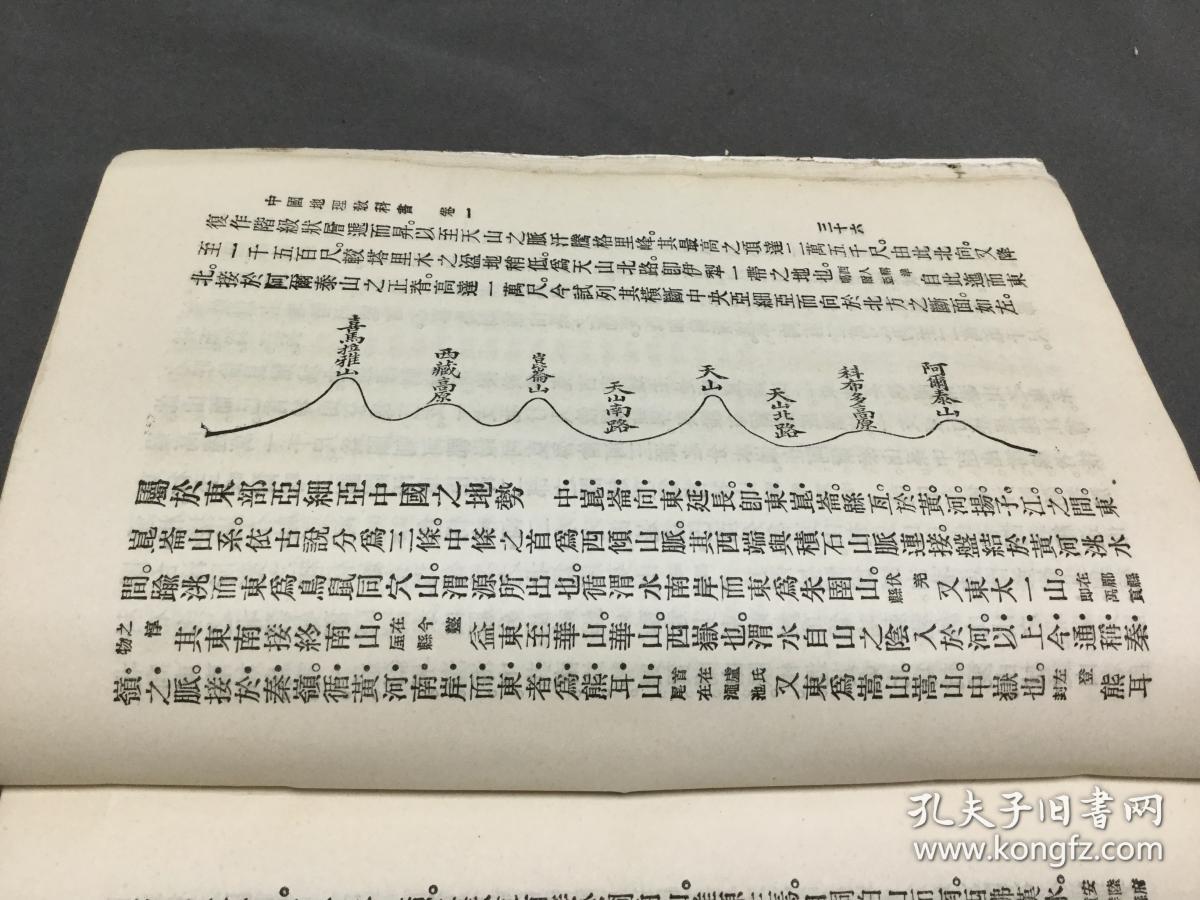 中國地理敎科書 卷一
三十六
復作階級狀層遞而昇。以至天山之脈汗騰格里峰。其最高之頂達二萬五千尺。由此北向。又降
至一千五百尺。較塔里木之盆地稍低。爲天山北路。卽伊犂一帶之地也。自此遞而東
北。接於阿爾泰山之正脊。高達一萬尺。今試列其橫斷中央亞細亞而向於北方之斷面如左。
喜馬拉雅山
西藏高原
崑崙山
天山南路
天山
天山北路
科布多高原
阿爾泰山
屬於東部亞細亞中國之地勢 中崑崙向東延長。卽東崑崙。緜亙於黃河揚子江之間。東
崑崙山系。依古說分爲三條。中條之首爲西傾山脈。其西端與積石山脈連接。盤結於黃河洮水
間。踰洮而東爲鳥鼠同穴山。渭源所出也。循渭水南岸而東爲朱圉山。伏羌縣又東太一山。
惇物其東南接終南山。在今盩厔縣益東至華山。華山西嶽也。渭水自山之陰入於河。以上今通稱秦
嶺之脈。接於秦嶺。循黃河南岸而東者爲熊耳山。首在盧氏尾在澠池又東爲嵩山。嵩山中嶽也。在登封熊耳
孔夫子旧书网
www.kongfz.com